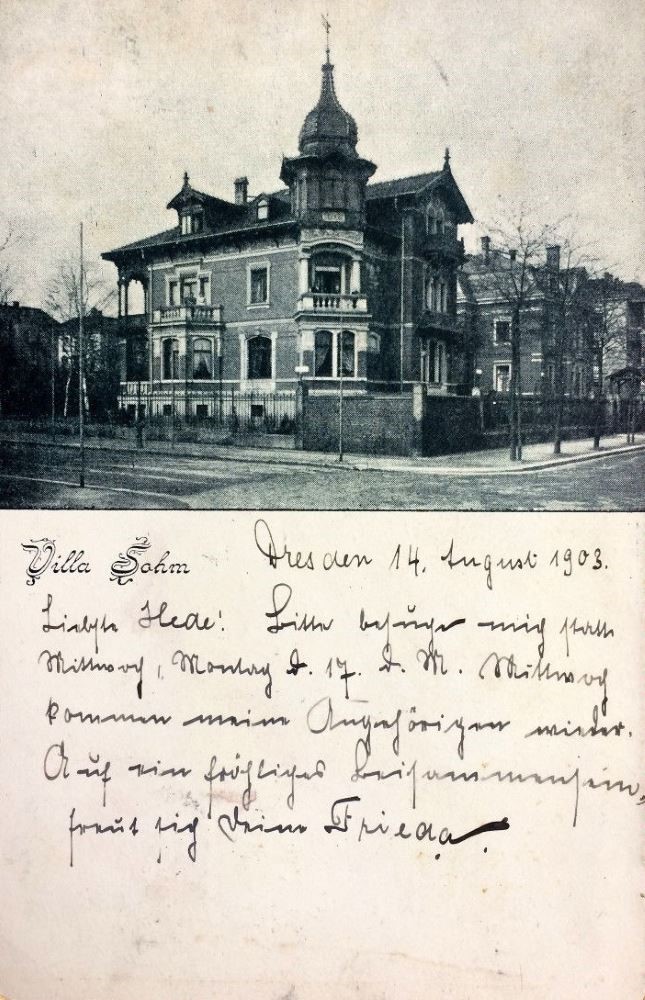 Villa Sohm
Dresden 14. August 1903.
Liebste Hede! Bitte besuche mich statt
Mittwoch, Montag d. 17. d. M. Mittwoch
kommen meine Angehörigen wieder.
Auf ein fröhliches Beisammensein,
freut sich Deine Frieda.